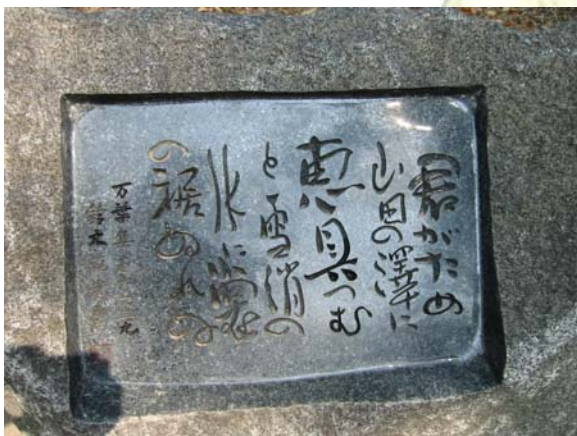 君がため
山田の澤に
恵具つむ
と雪消の
水に裳
の裾ぬれぬ
万葉集